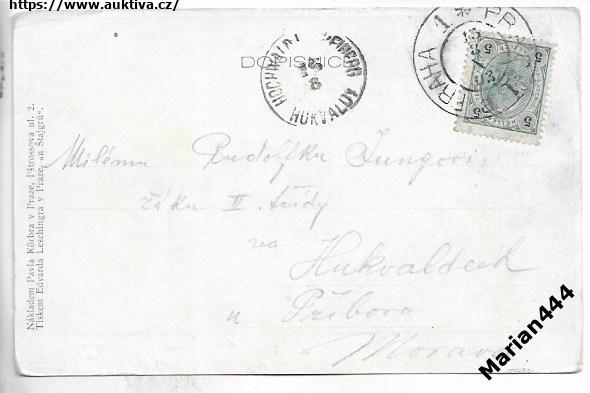 https://www.auktiva.cz/
DOPISNICE
HUKVALDY
PRAHA 1 * PR
5 5
5 5
Milému Rudolfku Jungovi,
žáku II. třídy
na
Hukvaldech
u Příbora
Morav
Nákladem Pavla Körbra v Praze, Pštrossova ul. 2.
Tiskem Edvarda Leschingra v Praze, „u Štajgrů".
Marian444